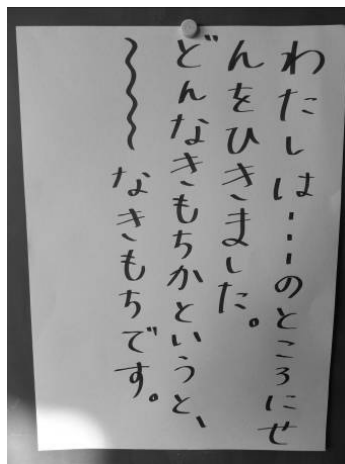 わたしは・・・のところにせ
んをひきました。
どんなきもちかというと、
〜〜〜なきもちです。